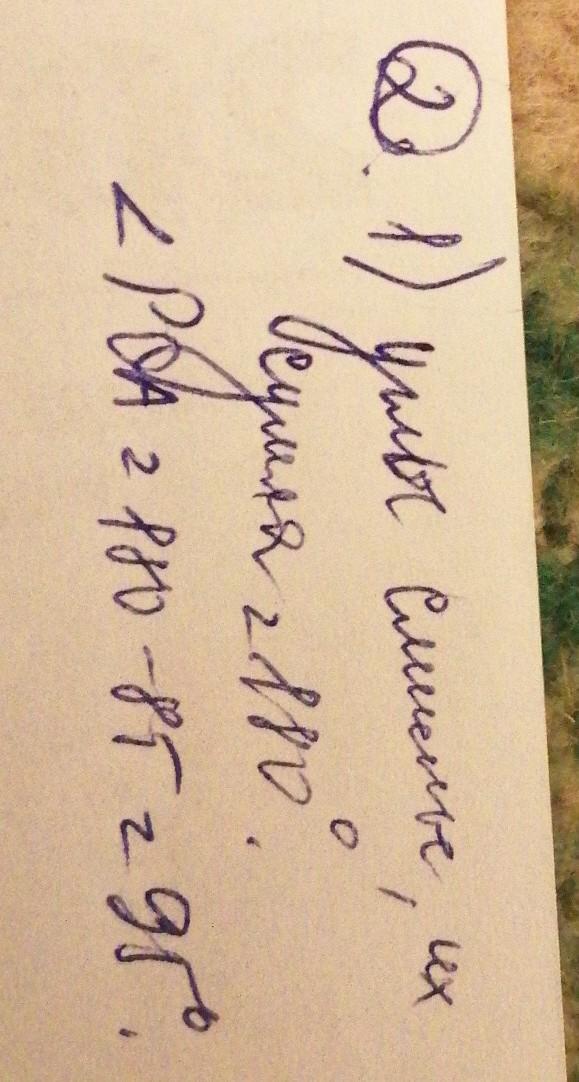 2. 1) углы смежные, их
сумма = 180°.
∠РОА = 180 - 85 = 95°.